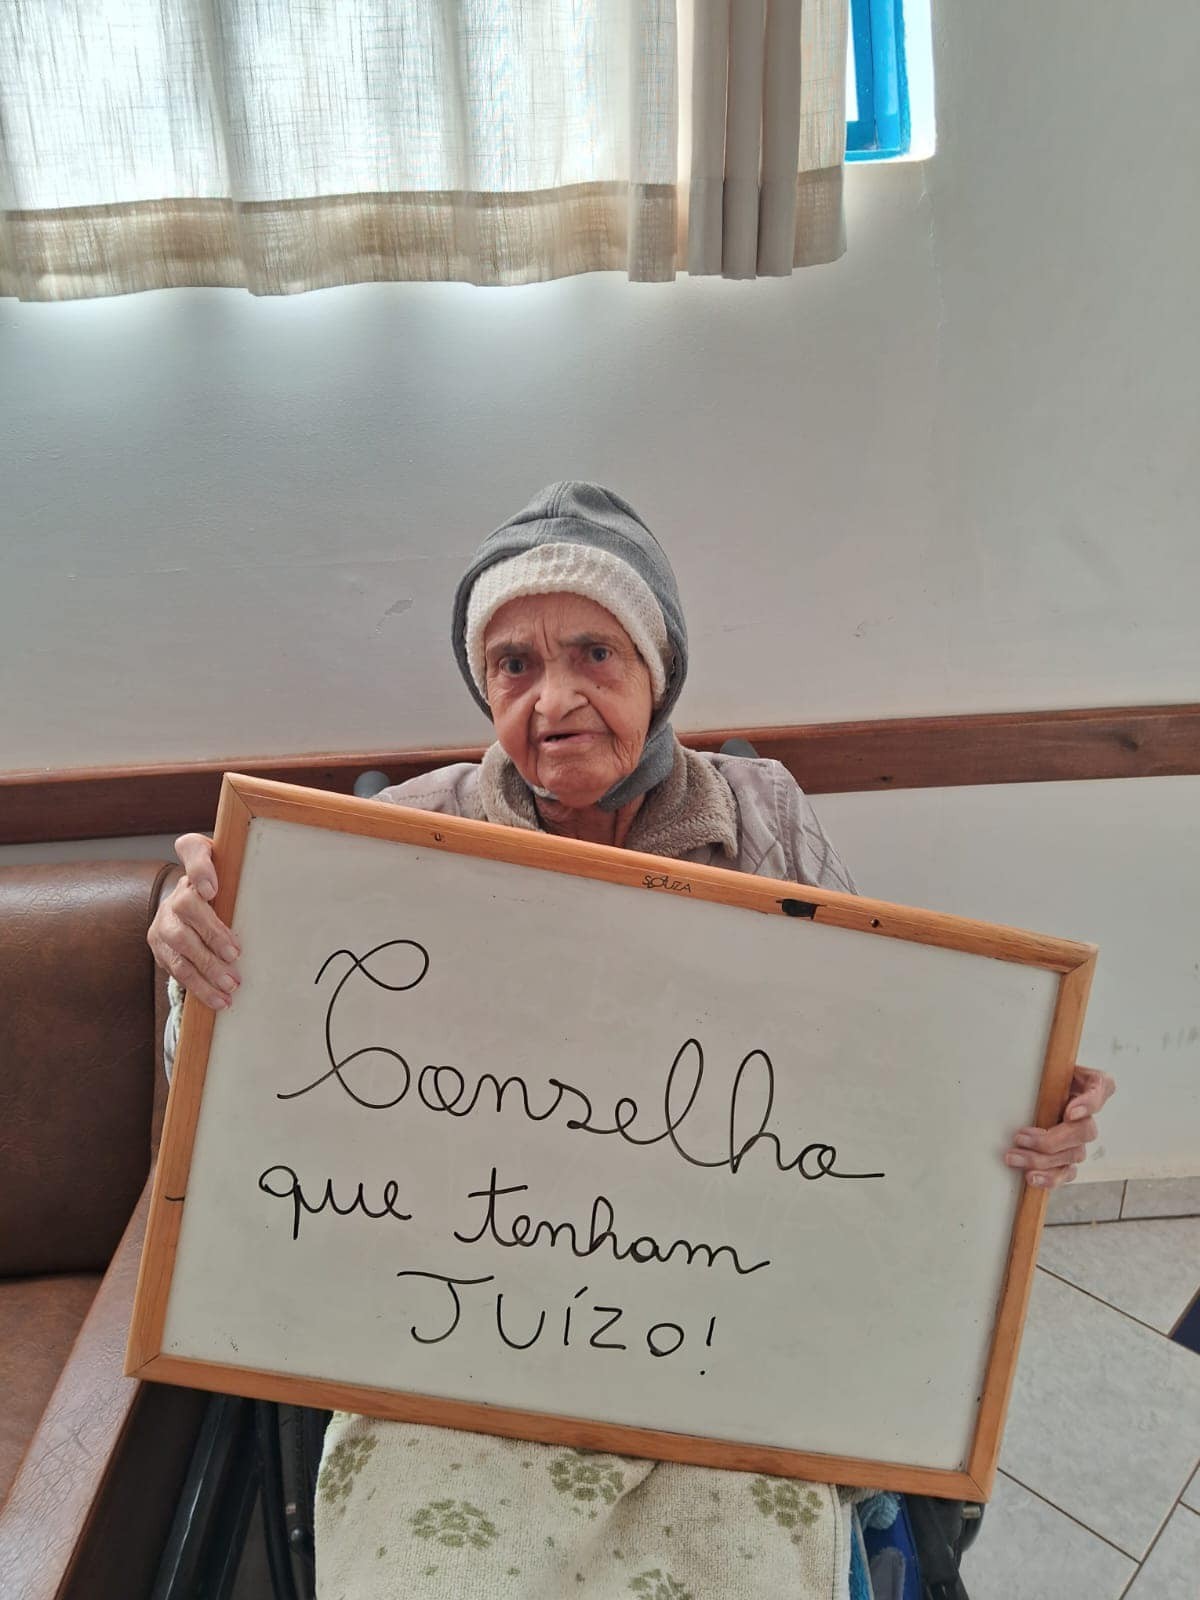 SOUZA
Conselho
que tenham
JUÍZO!